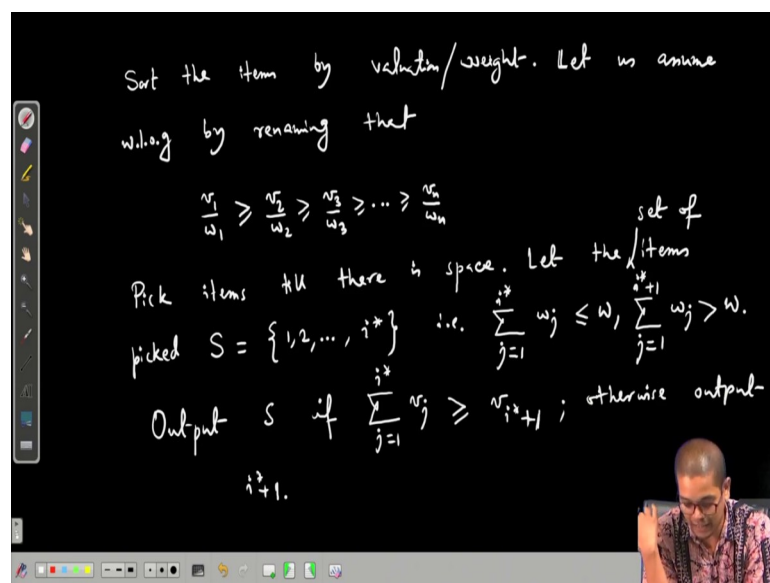 Sort the items by valuation/weight. Let us assume
w.l.o.g by renaming that
v₁/w₁ ⩾ v₂/w₂ ⩾ v₃/w₃ ⩾ ... ⩾ vₙ/wₙ
Pick items till there is space. Let the set of items
picked S = {1,2,..., i*} i.e. ∑_{j=1}^{i*} wⱼ ≤ W, ∑_{j=1}^{i*+1} wⱼ > W.
Output S if ∑_{j=1}^{i*} vⱼ ⩾ v_{i*+1} ; otherwise output
i*+1.